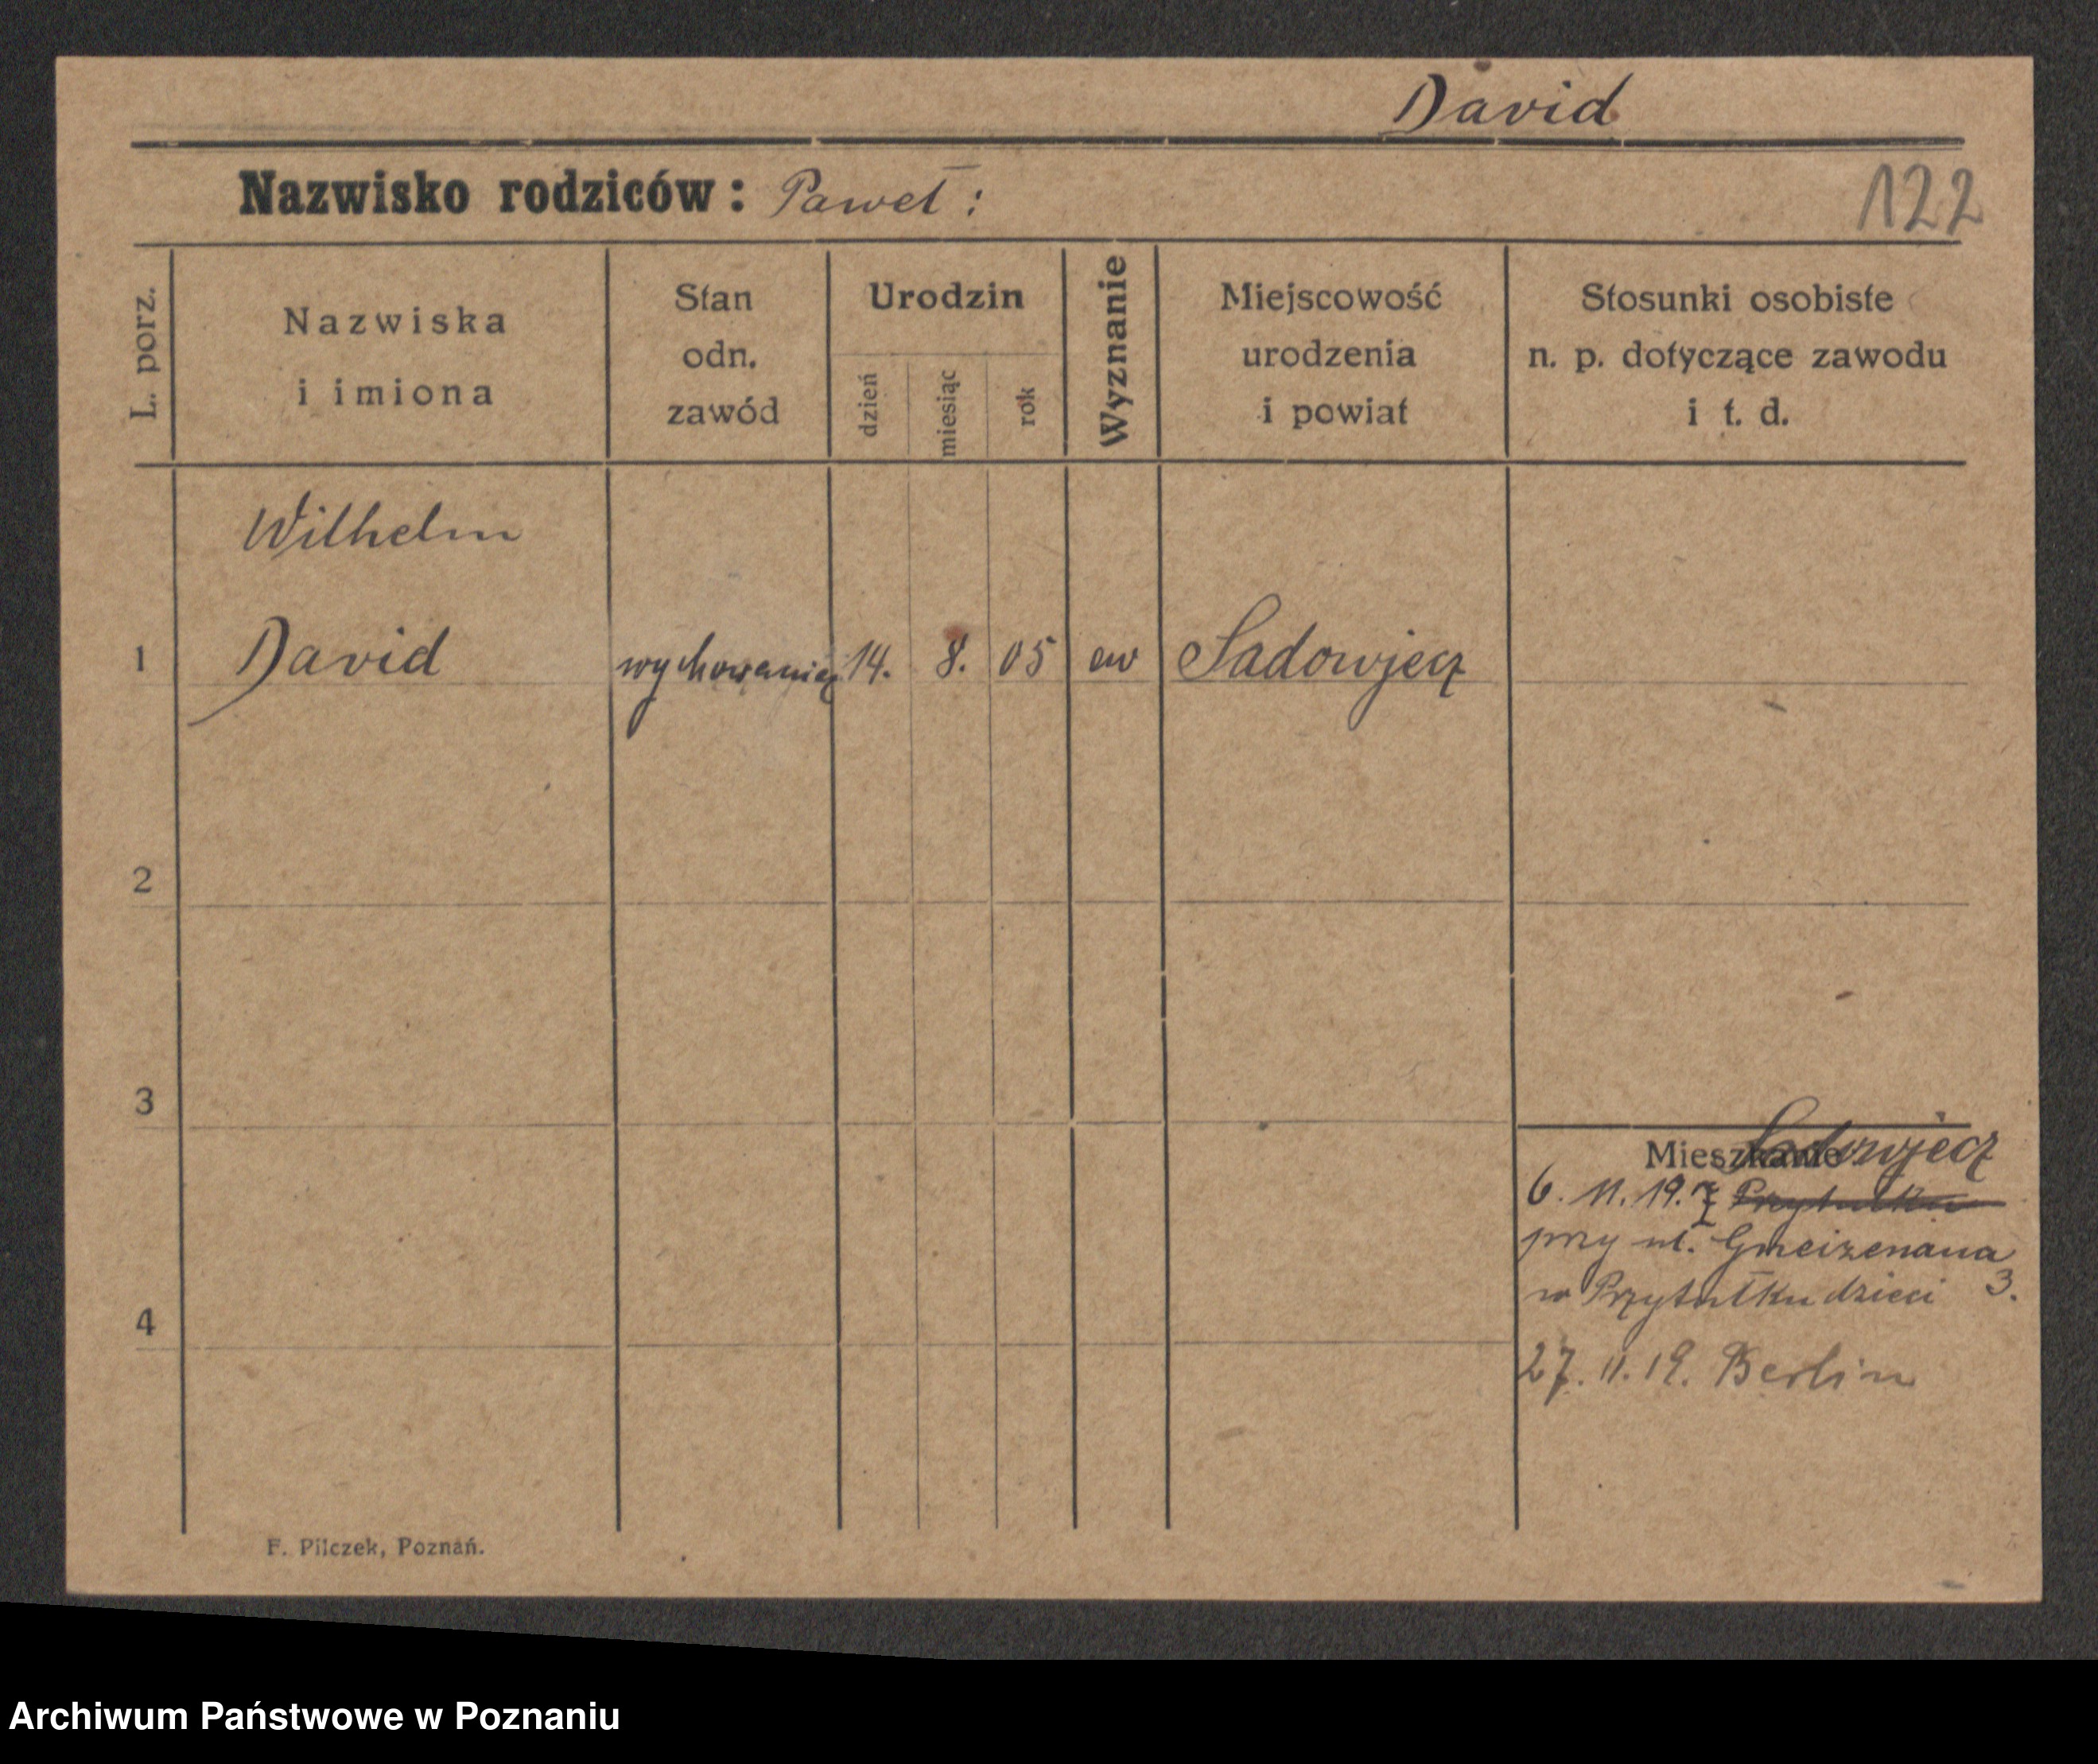 David
Nazwisko rodziców: Paweł:
122
L. porz.
Nazwiska
i imiona
Stan
odn.
zawód
Urodzin
dzień
miesiąc
rok
Wyznanie
Miejscowość
urodzenia
i powiat
Stosunki osobiste
n. p. dotyczące zawodu
i t. d.
Wilhelm
1 David wychowaniec 14. 8. 05 ew Sadowjecz
2
3
Mieszkanie Sadowjecz
6. 11. 19. Przytułku
przy ul. Gneizenaua
w Przytułku dzieci 3.
4
27. 11. 19. Berlin
F. Pilczek, Poznań.
Archiwum Państwowe w Poznaniu